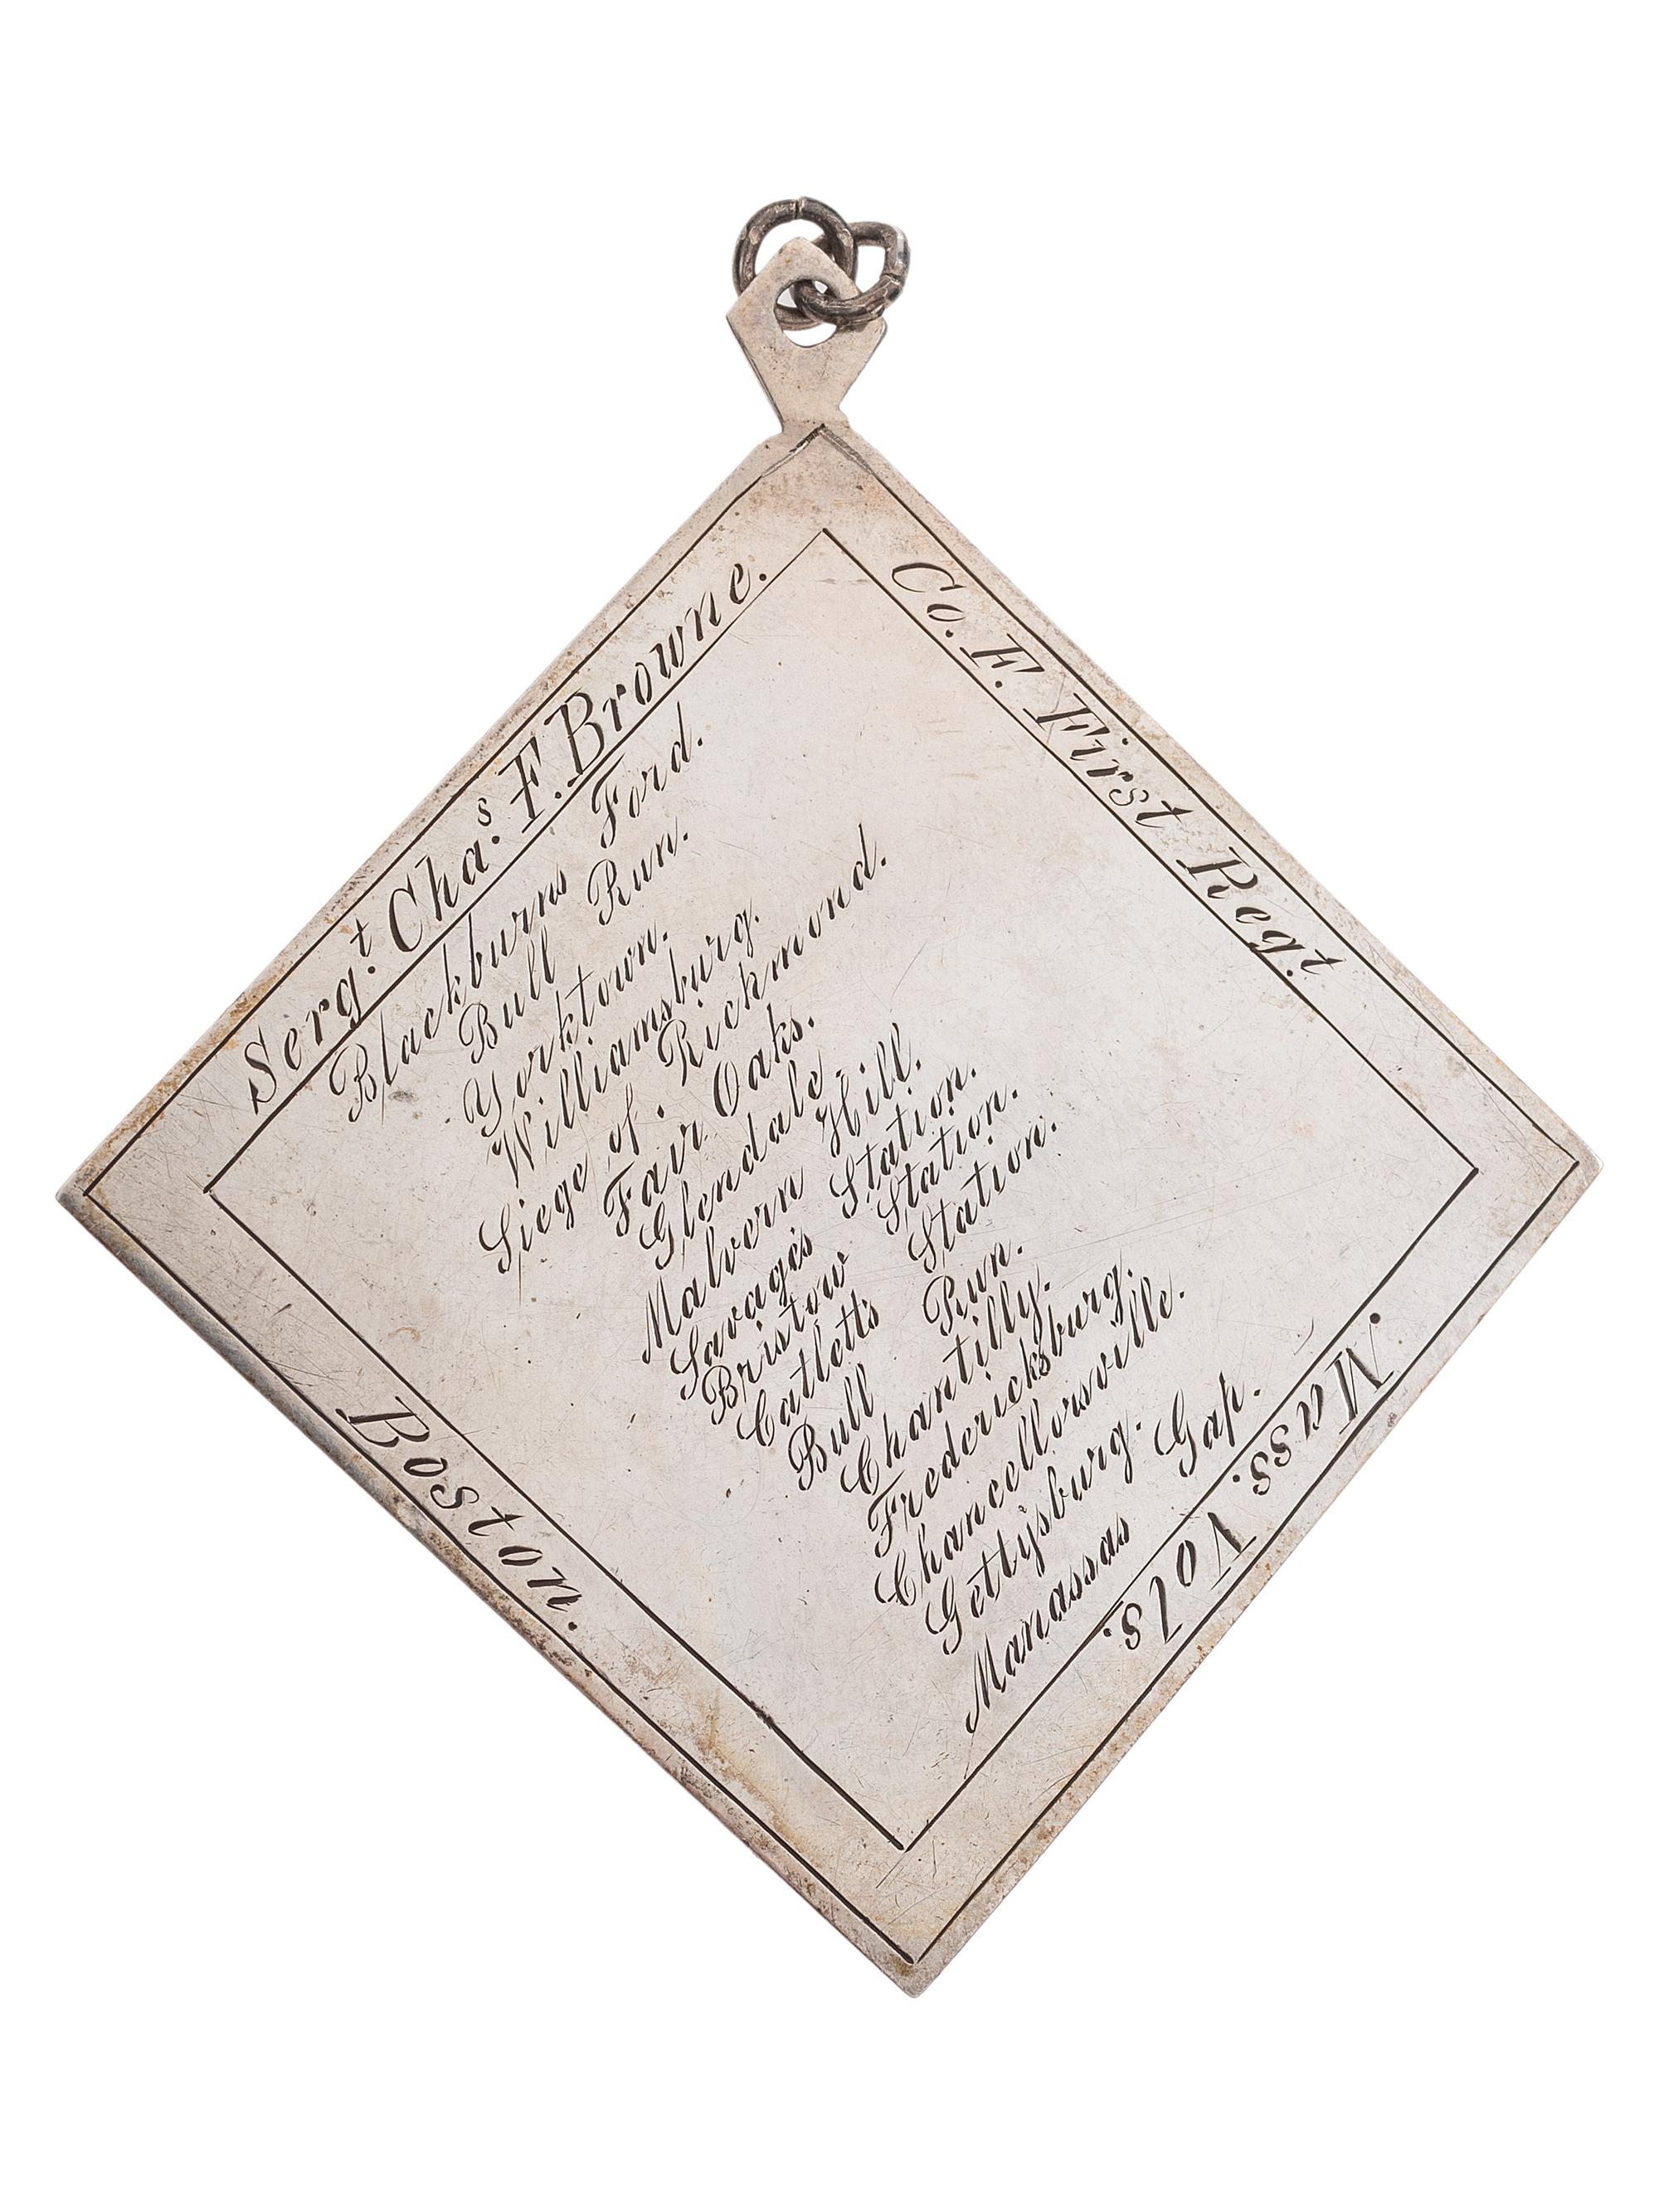 Sergt. Chas. F. Browne.
Co. F. First Regt.
Mass. Vols.
Boston.
Blackburns Ford.
Bull Run.
Yorktown.
Williamsburg.
Siege of Richmond.
Fair Oaks.
Glendale.
Malvern Hill.
Savage's Station.
Bristow Station.
Catlett's Station.
Bull Run.
Chantilly.
Fredericksburg.
Chancellorsville.
Gettysburg.
Manassas Gap.